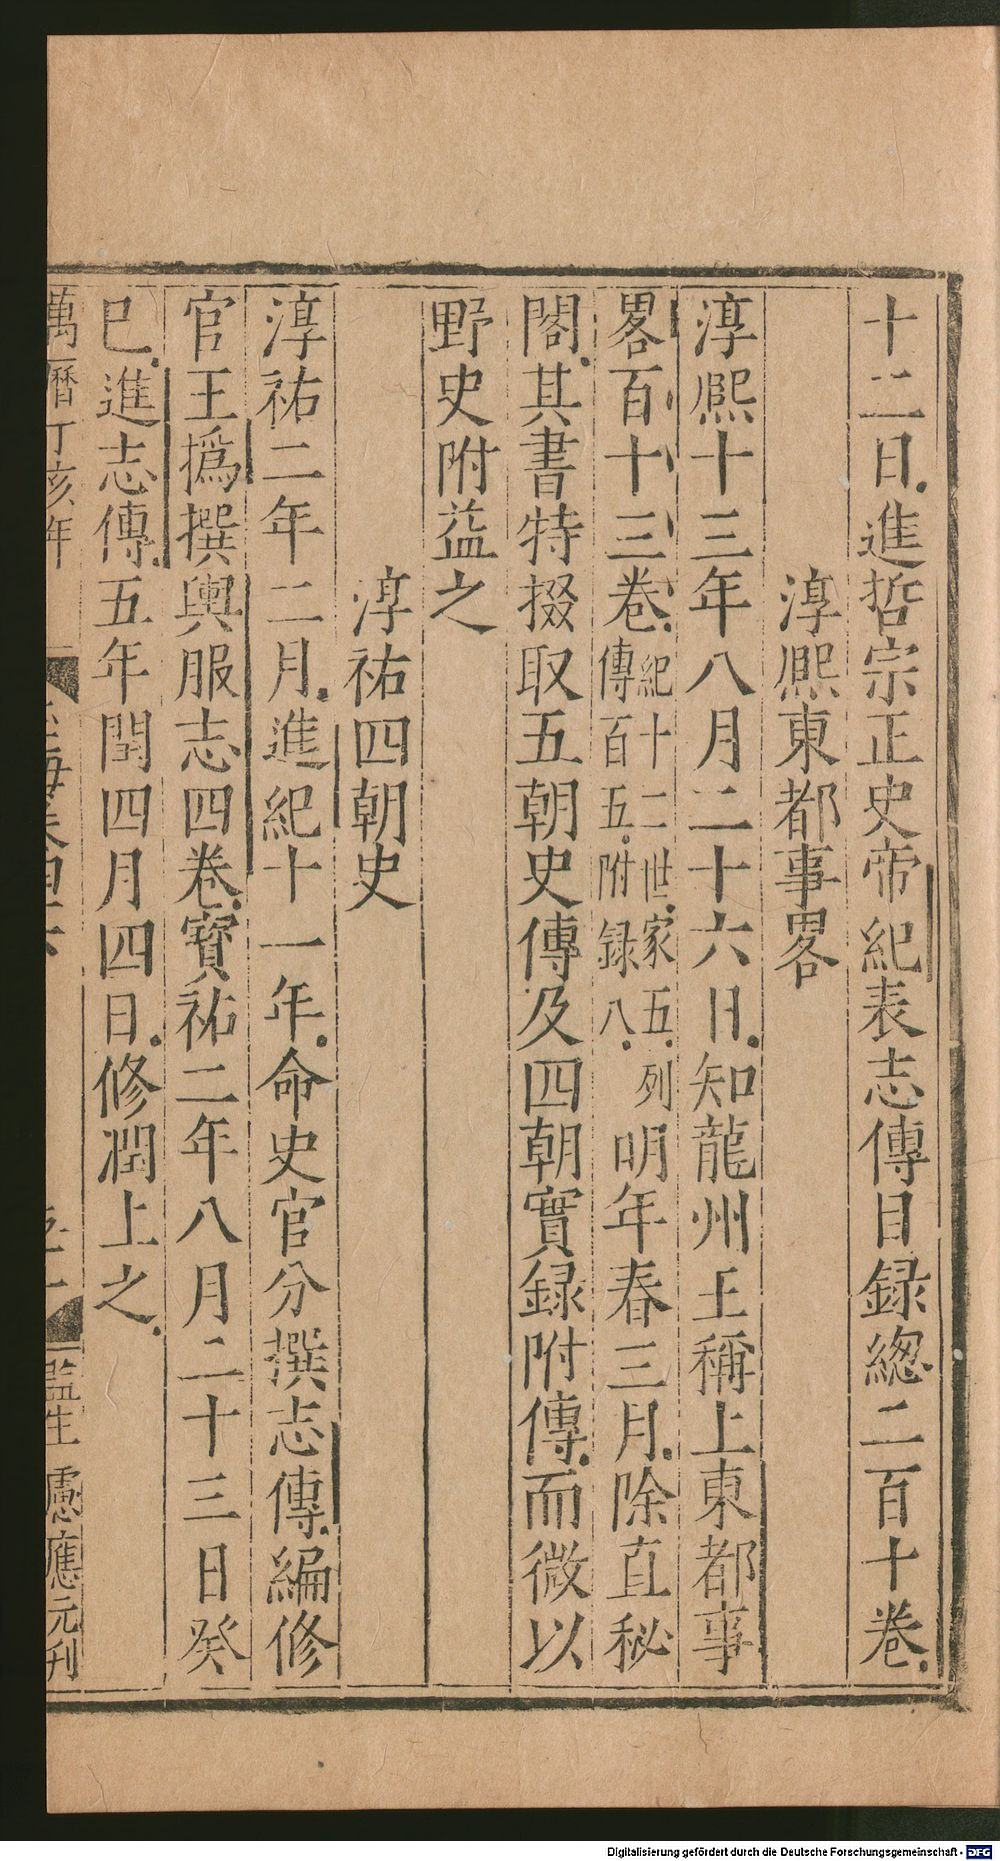 十二日進哲宗正史帝紀表志傳目録緫二百十卷
淳熈東都事畧
淳熈十三年八月二十六日知龍州王稱上東都事
畧百十三卷紀十二世家五列傳百五附録八明年春三月除直秘
閣其書特掇取五朝史傳及四朝實録附傳而微以
野史附益之
淳祐四朝史
淳祐二年二月進紀十一年命史官分撰志傳編修
官王撝撰輿服志四卷寳祐二年八月二十三日癸
巳進志傳五年閏四月四日修潤上之
萬曆丁亥年
監生
應元刊
Digitalisierung gefördert durch die Deutsche Forschungsgemeinschaft - DFG